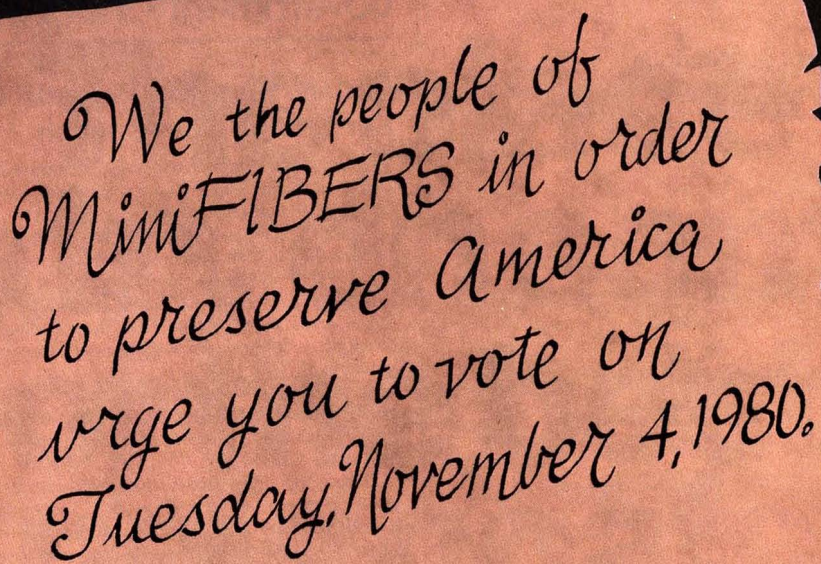 We the people of
MiniFIBERS in order
to preserve America
urge you to vote on
Tuesday, November 4, 1980.